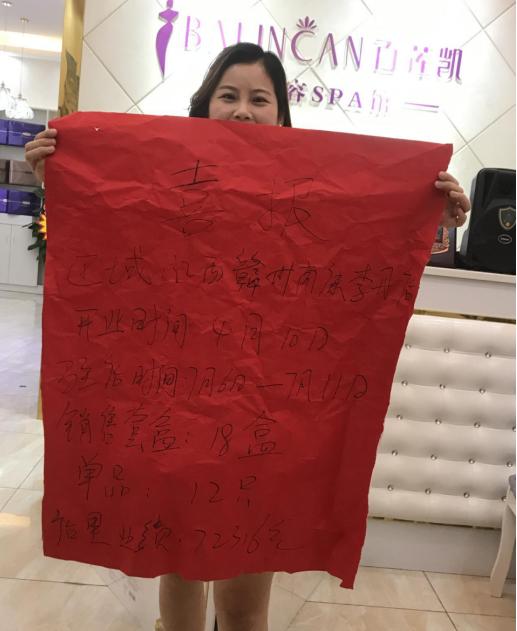 BALINCAN 百莲凯
美容SPA馆
喜报
区域 江西赣州南康李月
开业时间 4月10日
驻店时间:7月6日—7月11日
销售套盒: 18盒
单品: 12只
拓客业绩:72316元